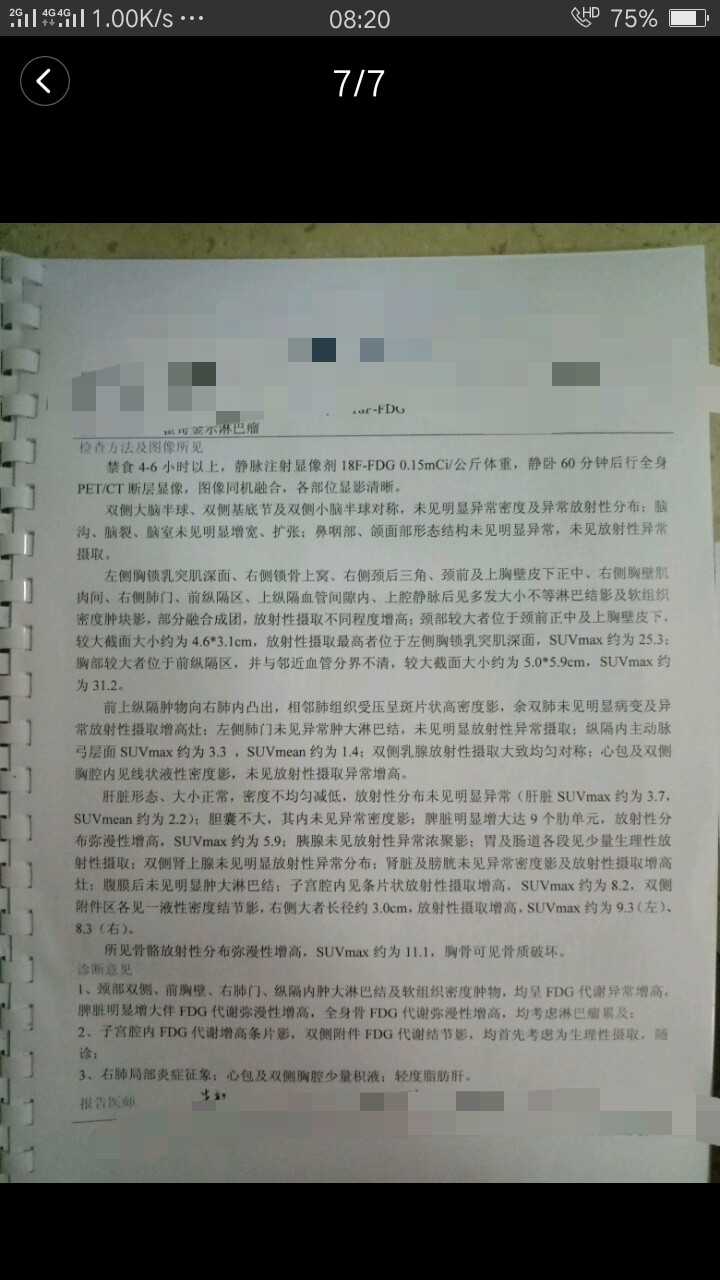 2G 4G 4G 1.00K/s ··· 08:20 HD 75%
7/7
18F-FDG
淋巴瘤
检查方法及图像所见
禁食 4-6 小时以上，静脉注射显像剂 18F-FDG 0.15mCi/公斤体重，静卧 60 分钟后行全身
PET/CT 断层显像，图像同机融合，各部位显影清晰。
双侧大脑半球、双侧基底节及双侧小脑半球对称，未见明显异常密度及异常放射性分布；脑
沟、脑裂、脑室未见明显增宽、扩张；鼻咽部、颌面部形态结构未见明显异常，未见放射性异常
摄取。
左侧胸锁乳突肌深面、右侧锁骨上窝、右侧颈后三角、颈前及上胸壁皮下正中、右侧胸壁肌
肉间、右侧肺门、前纵隔区、上纵隔血管间隙内、上腔静脉后见多发大小不等淋巴结影及软组织
密度肿块影，部分融合成团，放射性摄取不同程度增高；颈部较大者位于颈前正中及上胸壁皮下，
较大截面大小约为 4.6*3.1cm，放射性摄取最高者位于左侧胸锁乳突肌深面，SUVmax 约为 25.3；
胸部较大者位于前纵隔区，并与邻近血管分界不清，较大截面大小约为 5.0*5.9cm，SUVmax 约
为 31.2。
前上纵隔肿物向右肺内凸出，相邻肺组织受压呈斑片状高密度影，余双肺未见明显病变及异
常放射性摄取增高灶；左侧肺门未见异常肿大淋巴结，未见明显放射性异常摄取；纵隔内主动脉
弓层面 SUVmax 约为 3.3 ，SUVmean 约为 1.4；双侧乳腺放射性摄取大致均匀对称；心包及双侧
胸腔内见线状液性密度影，未见放射性摄取异常增高。
肝脏形态、大小正常，密度不均匀减低，放射性分布未见明显异常（肝脏 SUVmax 约为 3.7，
SUVmean 约为 2.2）；胆囊不大，其内未见异常密度影；脾脏明显增大达 9 个肋单元，放射性分
布弥漫性增高，SUVmax 约为 5.9；胰腺未见放射性异常浓聚影；胃及肠道各段见少量生理性放
射性摄取；双侧肾上腺未见明显放射性异常分布；肾脏及膀胱未见异常密度影及放射性摄取增高
灶；腹膜后未见明显肿大淋巴结；子宫腔内见条片状放射性摄取增高，SUVmax 约为 8.2，双侧
附件区各见一液性密度结节影，右侧大者长径约 3.0cm，放射性摄取增高，SUVmax 约为 9.3（左）、
8.3（右）。
所见骨骼放射性分布弥漫性增高，SUVmax 约为 11.1，胸骨可见骨质破坏。
诊断意见
1、颈部双侧、前胸壁、右肺门、纵隔内肿大淋巴结及软组织密度肿物，均呈 FDG 代谢异常增高，
脾脏明显增大伴 FDG 代谢弥漫性增高，全身骨 FDG 代谢弥漫性增高，均考虑淋巴瘤累及；
2、子宫腔内 FDG 代谢增高条片影，双侧附件 FDG 代谢结节影，均首先考虑为生理性摄取，随
诊；
3、右肺局部炎症征象；心包及双侧胸腔少量积液；轻度脂肪肝。
报告医师